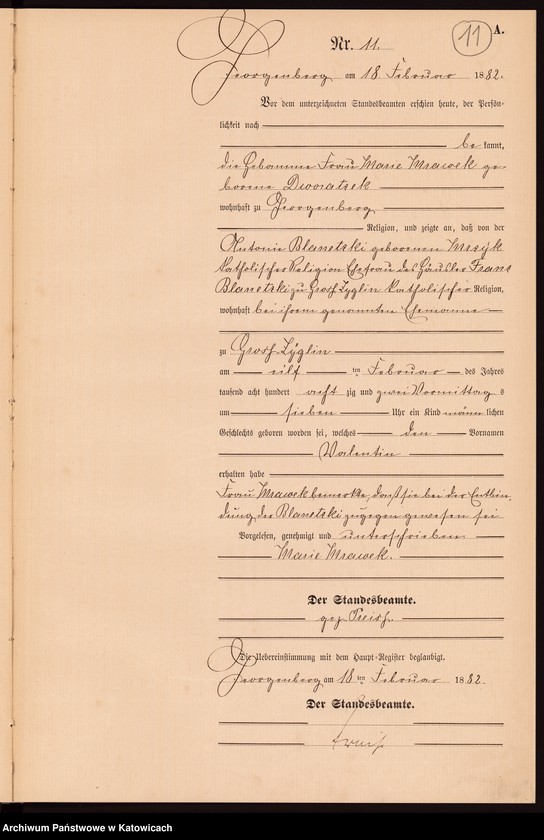 11
A.
Nr. 11.
Georgenberg am 18 Februar 1882.
Vor dem unterzeichneten Standesbeamten erschien heute, der Persön-
lichkeit nach
be kannt,
die Hebamme Frau Marie Mrawek ge-
borene Dworatzek
wohnhaft zu Georgenberg
Religion, und zeigte an, daß von der
Antonie Blanetzki geborenen
katholischer Religion Ehefrau des Häusler Franz
Blanetzki zu Groß Zyglin katholischer Religion,
wohnhaft bei ihrem genannten Ehemanne
zu Groß Zyglin
am eilf ten Februar des Jahres
tausend acht hundert acht zig und zwei Vormittag s
um sieben Uhr ein Kind männ lichen
Geschlechts geboren worden sei, welches den Vornamen
Valentin
erhalten habe
Frau Mrawek bemerkte, daß sie bei der Entbin-
dung der Blanetzki zugegen gewesen sei
Vorgelesen, genehmigt und unterschrieben
Marie Mrawek.
Der Standesbeamte.
gez
Die Uebereinstimmung mit dem Haupt-Register beglaubigt.
Georgenberg am 18 ten Februar 1882.
Der Standesbeamte.
Archiwum Państwowe w Katowicach